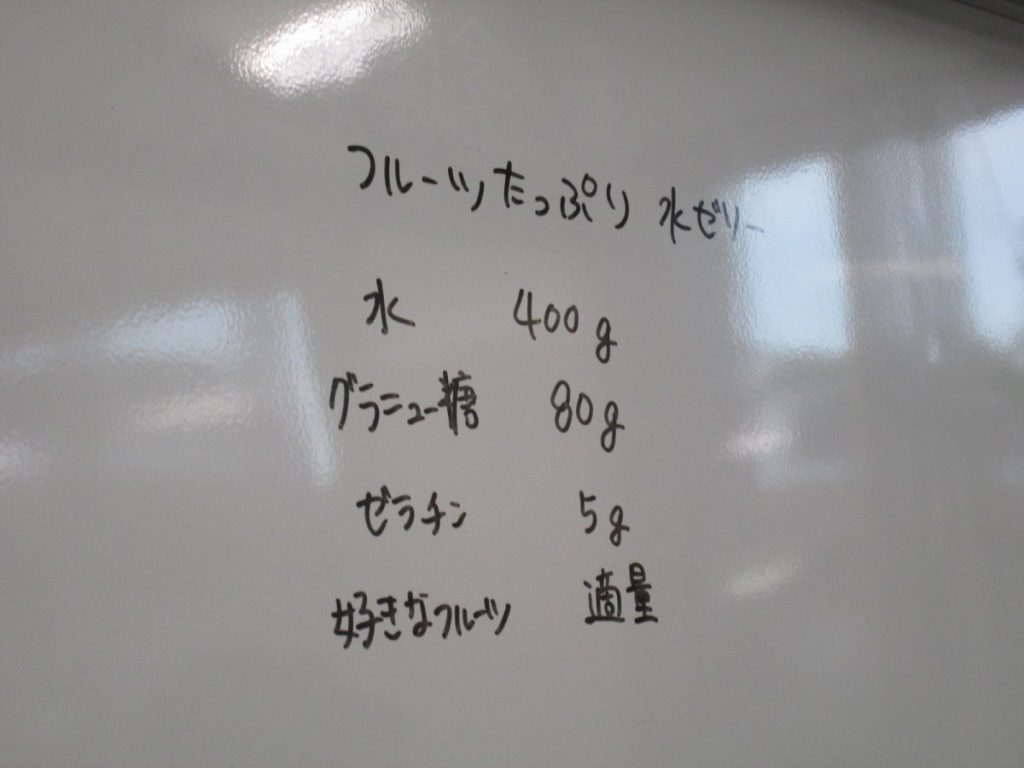 フルーツたっぷり 水ゼリー
水 400g
グラニュー糖 80g
ゼラチン 5g
好きなフルーツ 適量